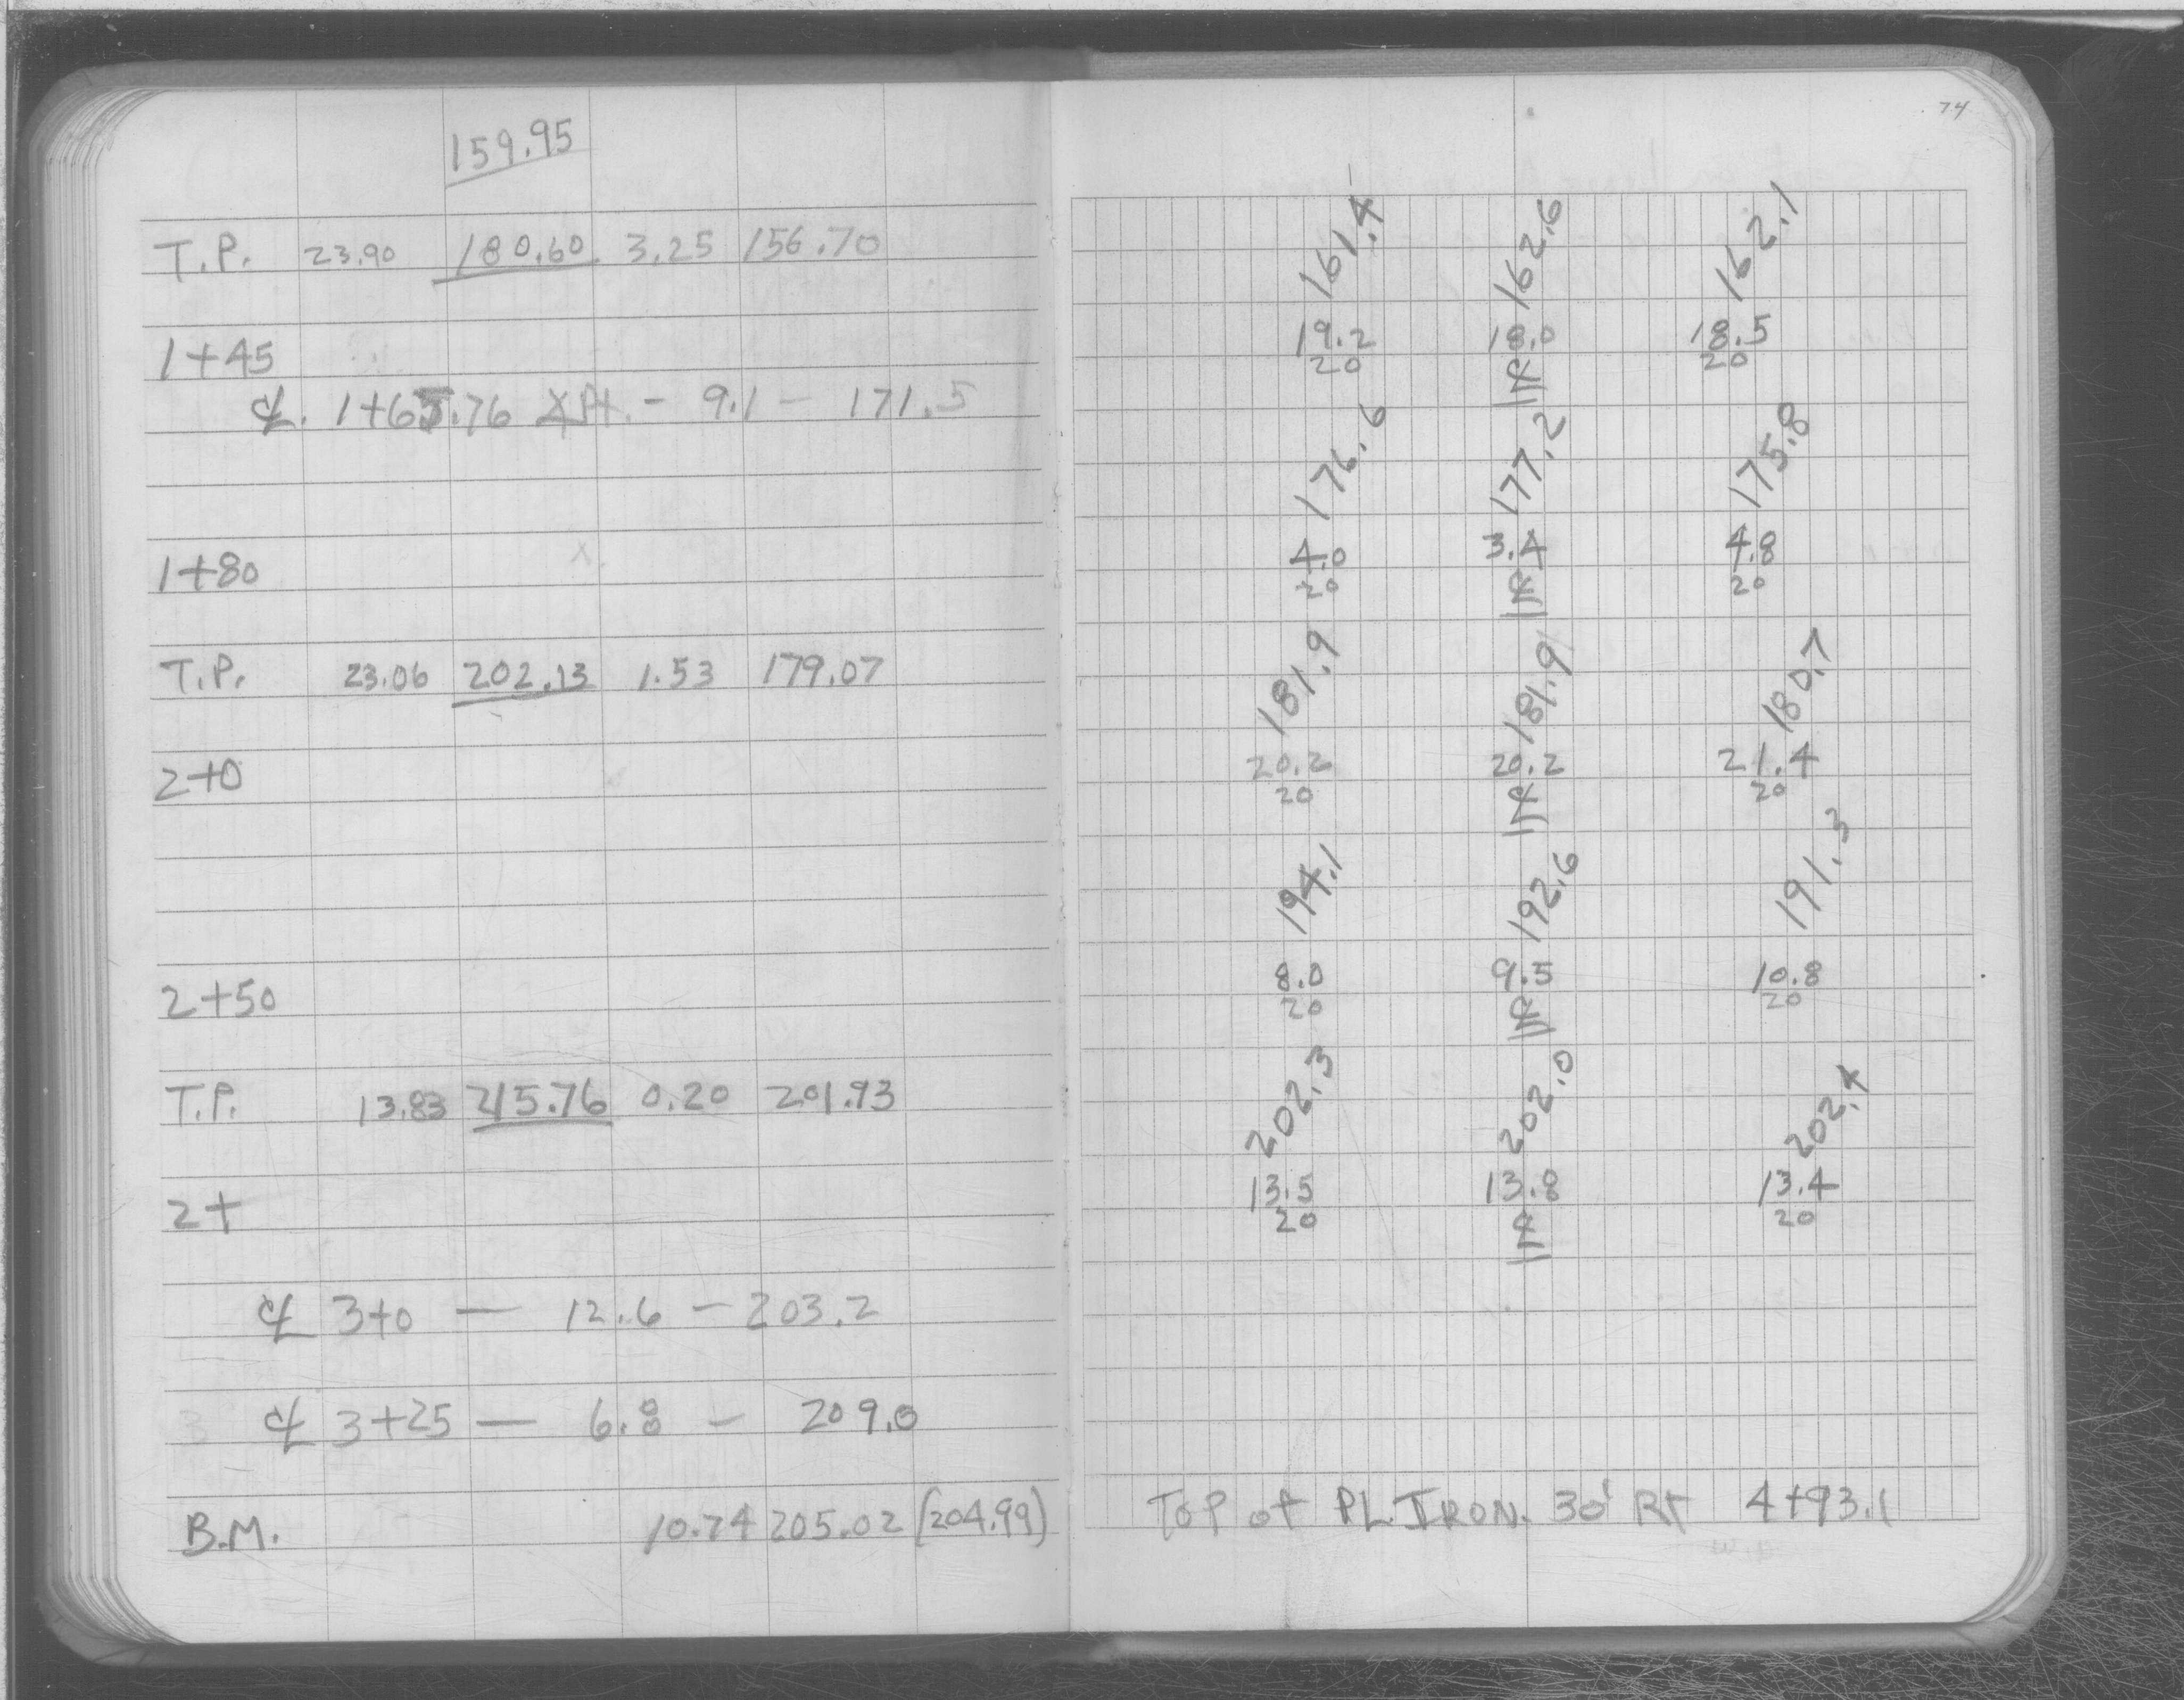 74
159.95
T.P. 23.90 180.60 3.25 156.70
161.4 162.6 162.1
1+45 19.2 18.0 18.5
20 ℄ 20
℄. 1+65.76 - 9.1 - 171.5
176.6 177.2 175.8
1+80 4.0 3.4 4.8
20 ℄ 20
T.P. 23.06 202.13 1.53 179.07
181.9 181.9 180.7
2+0 20.2 20.2 21.4
20 ℄ 20
194.1 192.6 191.3
2+50 8.0 9.5 10.8
20 ℄ 20
T.P. 13.83 215.76 0.20 201.93
202.3 202.0 202.4
2+ 13.5 13.8 13.4
20 ℄ 20
℄ 3+0 — 12.6 - 203.2
℄ 3+25 — 6.8 - 209.0
B.M. 10.74 205.02 (204.99) TOP of PL IRON. 30' Rt 4+93.1